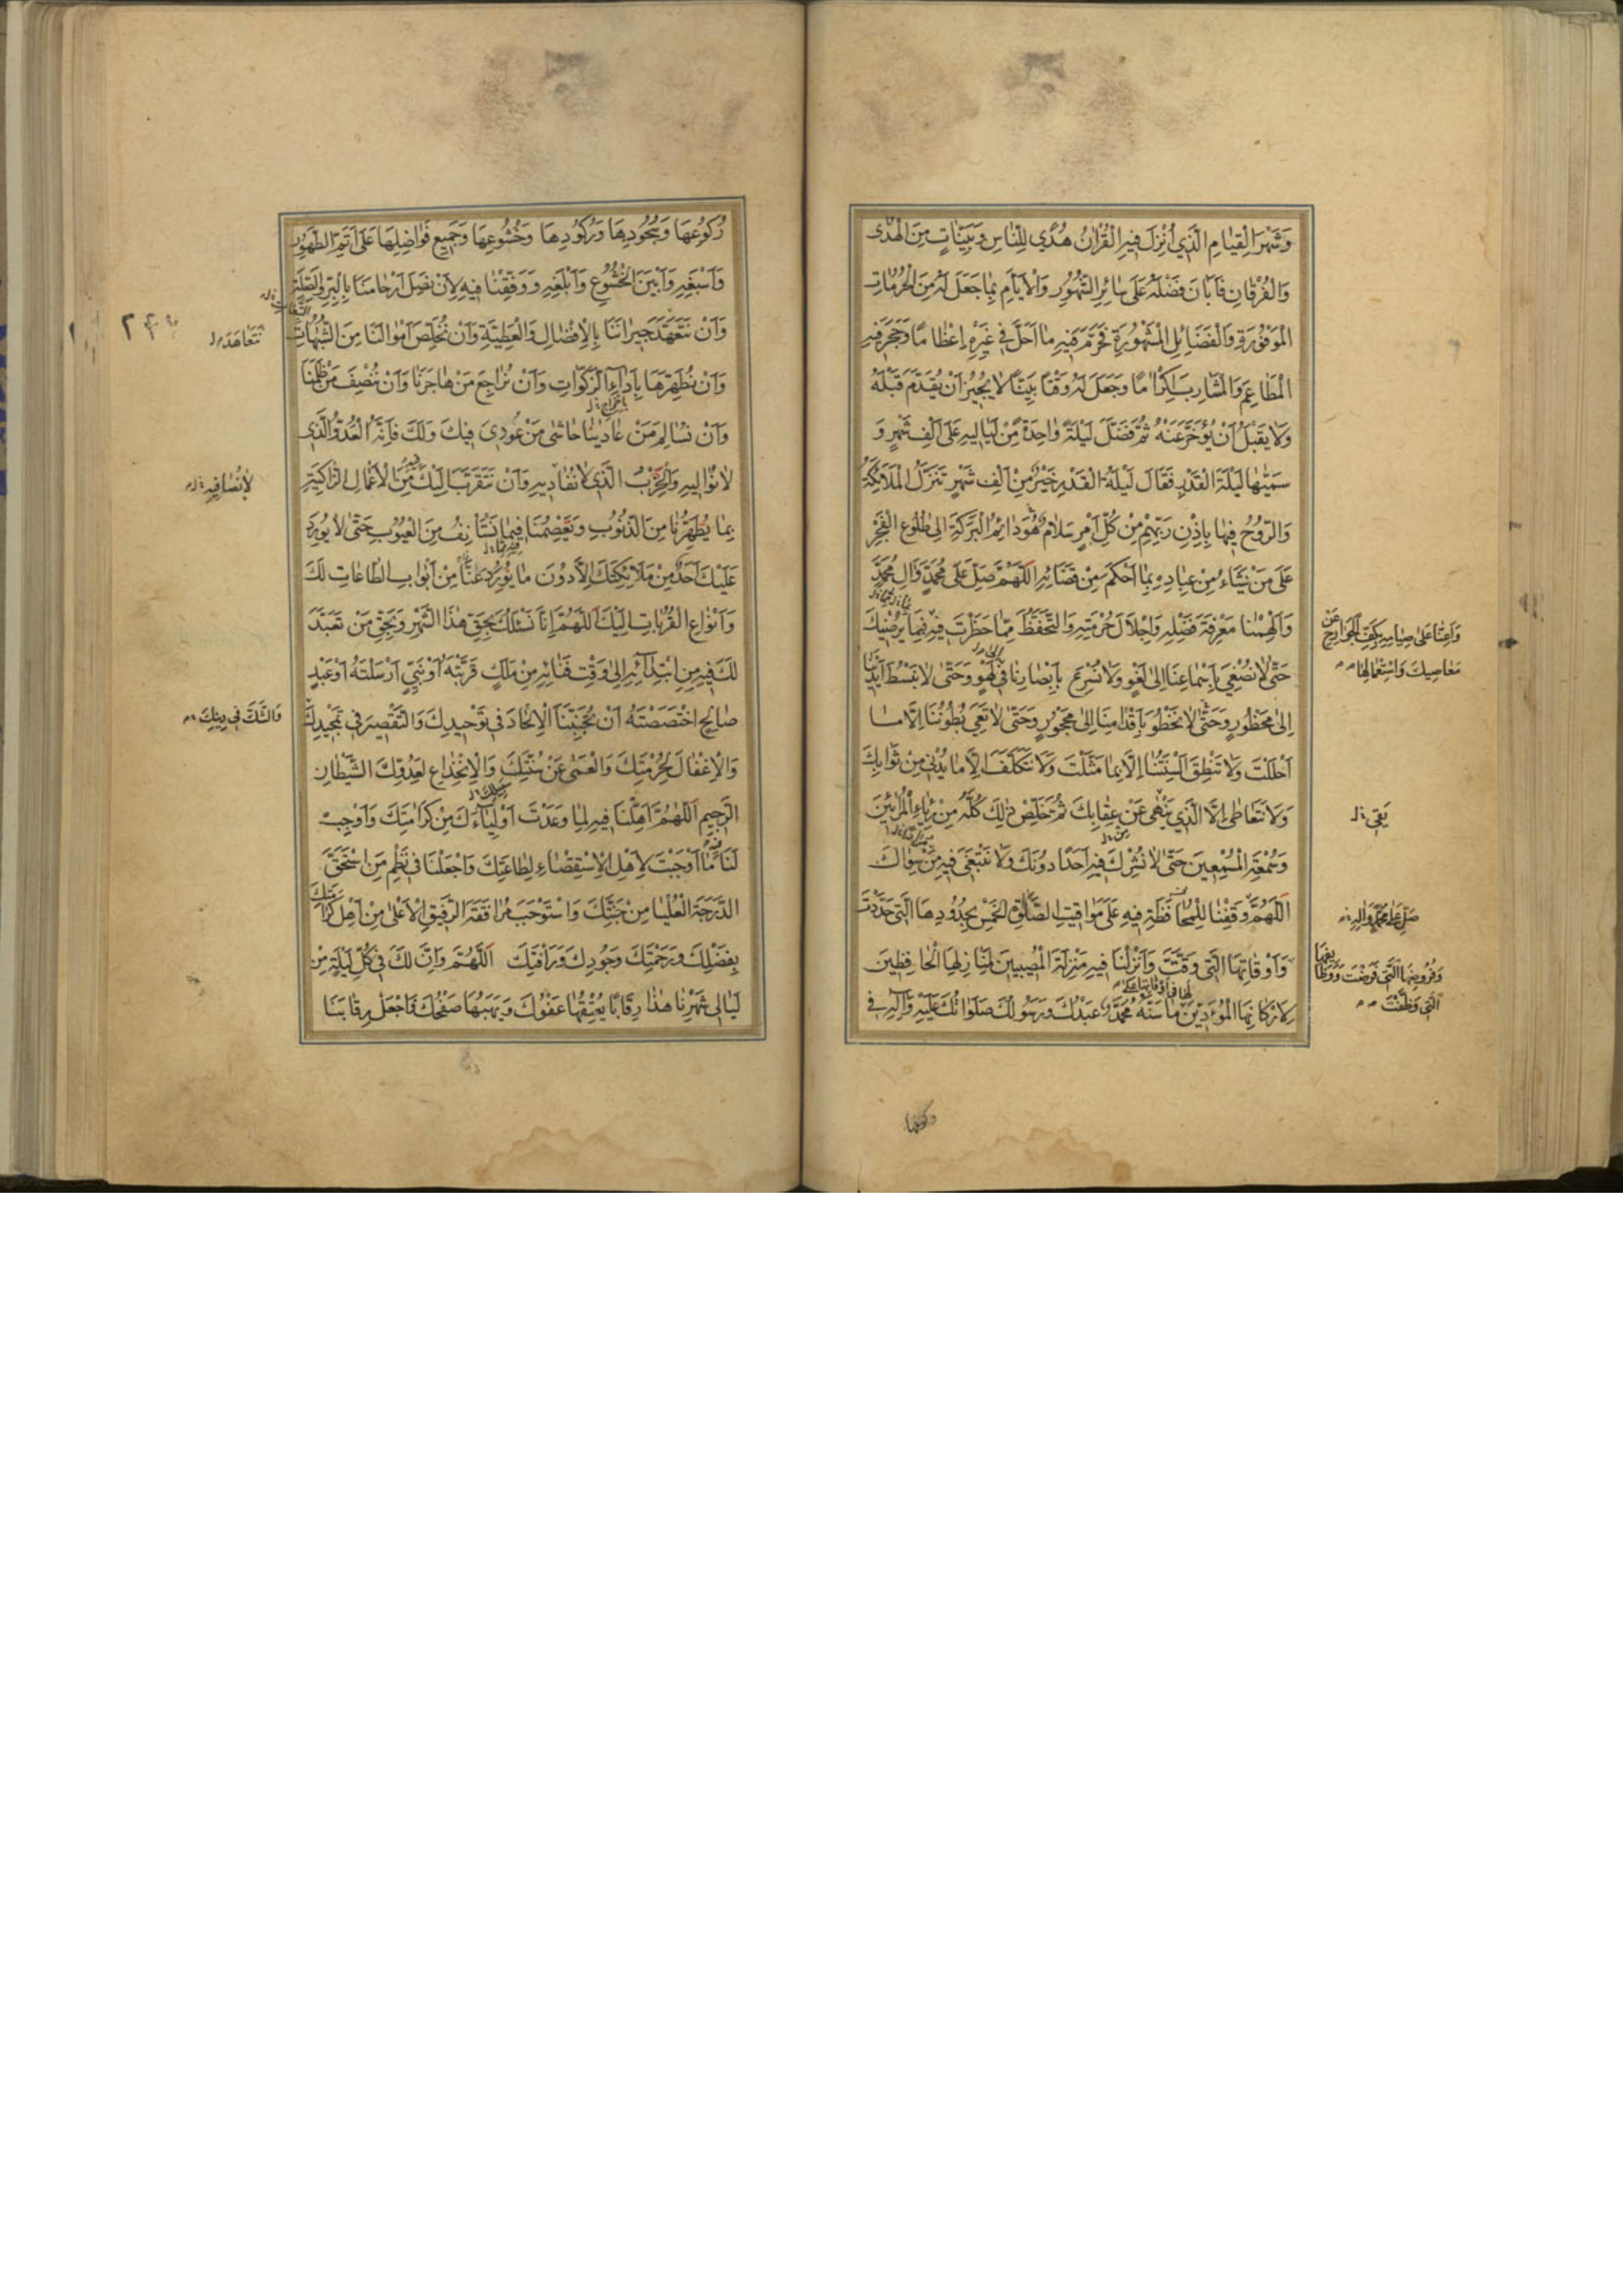 وَشَهْرَ الْقِيَامِ الَّذِي اُنْزِلَ فِيهِ الْقُرْاٰنُ هُدًي لِلنَّاسِ وَبَيِّنَاتٍ مِنَ الْهُدٰى
وَالْفُرْقَانِ فَاَبَانَ فَضْلَهُ عَلَى سَائِرِ الشُّهُورِ وَالْاَيَّامِ بِمَا جَعَلَ لَهُ مِنَ الْحُرُمَاتِ
الْمَوْفُورَةِ وَالْفَضَائِلِ الْمَشْهُورَةِ فَحَرَّمَ فِيهِ مَا اَحَلَّ فِي غَيْرِهِ اِعْظَامًا وَحَجَرَ فِيهِ
الْمَطَاعِمَ وَالْمَشَارِبَ اِكْرَامًا وَجَعَلَ لَهُ وَقْتًا بَيِّنًا لَا يُجِيزُ اَنْ يُقَدَّمَ قَبْلَهُ
وَلَا يَقْبَلُ اَنْ يُؤَخَّرَ عَنْهُ ثُمَّ فَضَّلَ لَيْلَةً وَاحِدَةً مِنْ لَيَالِيهِ عَلَى اَلْفِ شَهْرٍ وَ
سَمَّيٰهَا لَيْلَةَ الْقَدْرِ فَقَالَ لَيْلَةُ الْقَدْرِ خَيْرٌ مِنْ اَلْفِ شَهْرٍ تَنَزَّلُ الْمَلَائِكَةُ
وَالرُّوحُ فِيهَا بِاِذْنِ رَبِّهِمْ مِنْ كُلِّ اَمْرٍ سَلَامٌ هُوَ دَائِمُ الْبَرَكَةِ اِلَى طُلُوعِ الْفَجْرِ
عَلَى مَنْ يَشَاءُ مِنْ عِبَادِهِ بِمَا اَحْكَمَ مِنْ قَضَائِهِ اَللّٰهُمَّ صَلِّ عَلَى مُحَمَّدٍ وَاٰلِ مُحَمَّدٍ
وَاَلْهِمْنَا مَعْرِفَةَ فَضْلِهِ وَاِجْلَالَ حُرْمَتِهِ وَالتَّحَفُّظَ مِمَّا حَظَرْتَ فِيهِ فِيمَا يُرْضِيكَ
وَاَعِنَّا عَلَى صِيَامِهِ بِكَفِّ الْجَوَارِحِ عَنْ
مَعَاصِيكَ وَاسْتِعْمَالِهَا
حَتّٰى لَا نُصْغِيَ بِاَسْمَاعِنَا اِلَى لَغْوٍ وَلَا نُسْرِعَ بِاَبْصَارِنَا فِي لَهْوٍ وَحَتّٰى لَا نَبْسُطَ اَيْدِيَنَا
اِلَى مَحْظُورٍ وَحَتّٰى لَا نَخْطُوَ بِاَقْدَامِنَا اِلَى مَحْجُورٍ وَحَتّٰى لَا تَعِيَ بُطُونُنَا اِلَّا مَا
اَحْلَلْتَ وَلَا تَنْطِقَ اَلْسِنَتُنَا اِلَّا بِمَا مَثَّلْتَ وَلَا نَتَكَلَّفَ اِلَّا مَا يُدْنِي مِنْ ثَوَابِكَ
وَلَا نَتَعَاطَى اِلَّا الَّذِي يَنْهٰى عَنْ عِقَابِكَ ثُمَّ خَلِّصْ ذٰلِكَ كُلَّهُ مِنْ رِئَاءِ الْمُرَائِينَ
يَقِي
وَسُمْعَةِ الْمُسْمِعِينَ حَتّٰى لَا نُشْرِكَ فِيهِ اَحَدًا دُونَكَ وَلَا نَبْتَغِيَ فِيهِ مَنْ سِوَاكَ
اَللّٰهُمَّ وَوَقِّفْنَا لِلْمُحَافَظَةِ فِيهِ عَلَى مَوَاقِيتِ الصَّلَوٰةِ الْخَمْسِ بِحُدُودِهَا الَّتِي حَدَّدْتَ
صَلِّ عَلَى مُحَمَّدٍ وَاٰلِهِ
وَاَوْقَاتِهَا الَّتِي وَقَّتَّ وَاَنْزِلْنَا فِيهِ مَنْزِلَةَ الْمُصِيبِينَ لِمَنَازِلِهَا الْحَافِظِينَ
وَفُرُوضِهَا الَّتِي فَرَضْتَ وَوَظَائِفِهَا
الَّتِي وَظَّفْتَ
لِاَرْكَانِهَا الْمُؤَدِّينَ لَهَا فِي اَوْقَاتِهَا عَلَى مَا سَنَّهُ مُحَمَّدٌ عَبْدُكَ وَرَسُولُكَ صَلَوَاتُكَ عَلَيْهِ وَاٰلِهِ فِي
رُكُوعِهَا
رُكُوعِهَا وَسُجُودِهَا وَرُكُودِهَا وَخُشُوعِهَا وَجَمِيعِ فَوَاضِلِهَا عَلَى اَتَمِّ الطَّهُورِ
وَاَسْبَغِهِ وَاَبْيَنِ الْخُشُوعِ وَاَبْلَغِهِ وَوَفِّقْنَا فِيهِ لِاَنْ نَصِلَ اَرْحَامَنَا بِالْبِرِّ وَالصِّلَةِ
وَاَنْ نَتَعَهَّدَ جِيرَانَنَا بِالْاِفْضَالِ وَالْعَطِيَّةِ وَاَنْ نُخَلِّصَ اَمْوَالَنَا مِنَ الشُّبُهَاتِ
نَتَعَاهَدَ
٢٤٢
وَاَنْ نُطَهِّرَهَا بِاَدَاءِ الزَّكَوَاتِ وَاَنْ نُرَاجِعَ مَنْ هَاجَرَنَا وَاَنْ نُنْصِفَ مَنْ ظَلَمَنَا
بِاِخْرَاجِ
وَاَنْ نُسَالِمَ مَنْ عَادَيٰنَا حَاشٰى مَنْ عُودِيَ فِيكَ وَلَكَ فَاِنَّهُ الْعَدُوُّ الَّذِي
لَا نُوَالِيهِ وَالْحِزْبُ الَّذِي لَا نُفَادِيهِ وَاَنْ نَتَقَرَّبَ اِلَيْكَ فِيهِ مِنَ الْاَعْمَالِ الزَّاكِيَةِ
لَا نُصَافِيهِ
بِمَا تُطَهِّرُنَا مِنَ الذُّنُوبِ وَتَعْصِمُنَا فِيمَا نَسْتَأْنِفُ مِنَ الْعُيُوبِ حَتّٰى لَا يُورِدَ
عَلَيْكَ اَحَدٌ مِنْ مَلَائِكَتِكَ اِلَّا دُونَ مَا نُورِدُ عَنَّا مِنْ اَبْوَابِ الطَّاعَاتِ لَكَ
وَاَنْوَاعِ الْقُرُبَاتِ اِلَيْكَ اَللّٰهُمَّ اِنَّا نَسْئَلُكَ بِحَقِّ هٰذَا الشَّهْرِ وَبِحَقِّ مَنْ تَعَبَّدَ
لَكَ فِيهِ مِنِ ابْتِدَائِهِ اِلَى وَقْتِ فَنَائِهِ مِنْ مَلَكٍ قَرَّبْتَهُ اَوْ نَبِيٍّ اَرْسَلْتَهُ اَوْ عَبْدٍ
صَالِحٍ اخْتَصَصْتَهُ اَنْ تُجَنِّبَنَا الْاِلْحَادَ فِي تَوْحِيدِكَ وَالتَّقْصِيرَ فِي تَمْجِيدِكَ
وَالشَّكَّ فِي دِينِكَ
وَالْاِغْفَالَ لِحُرْمَتِكَ وَالْعَمٰى عَنْ سُنَّتِكَ وَالْاِنْخِدَاعَ لِعَدُوِّكَ الشَّيْطَانِ
سَبِيلِكَ
الرَّجِيمِ اَللّٰهُمَّ اَهِّلْنَا فِيهِ لِمَا وَعَدْتَ اَوْلِيَاءَكَ مِنْ كَرَامَتِكَ وَاَوْجِبْ
لَنَا فِيهِ مَا اَوْجَبْتَ لِاَهْلِ الْاِسْتِقْصَاءِ لِطَاعَتِكَ وَاجْعَلْنَا فِي نَظْمِ مَنِ اسْتَحَقَّ
الدَّرَجَةَ الْعُلْيَا مِنْ جَنَّتِكَ وَاسْتَوْجَبَ مُرَافَقَةَ الرَّفِيقِ الْاَعْلٰى مِنْ اَهْلِ كَرَامَتِكَ
بِفَضْلِكَ وَرَحْمَتِكَ وَجُودِكَ وَرَأْفَتِكَ اَللّٰهُمَّ وَاِنَّ لَكَ فِي كُلِّ لَيْلَةٍ مِنْ
لَيَالِي شَهْرِنَا هٰذَا رِقَابًا يُعْتِقُهَا عَفْوُكَ وَيَهَبُهَا صَفْحُكَ فَاجْعَلْ رِقَابَنَا